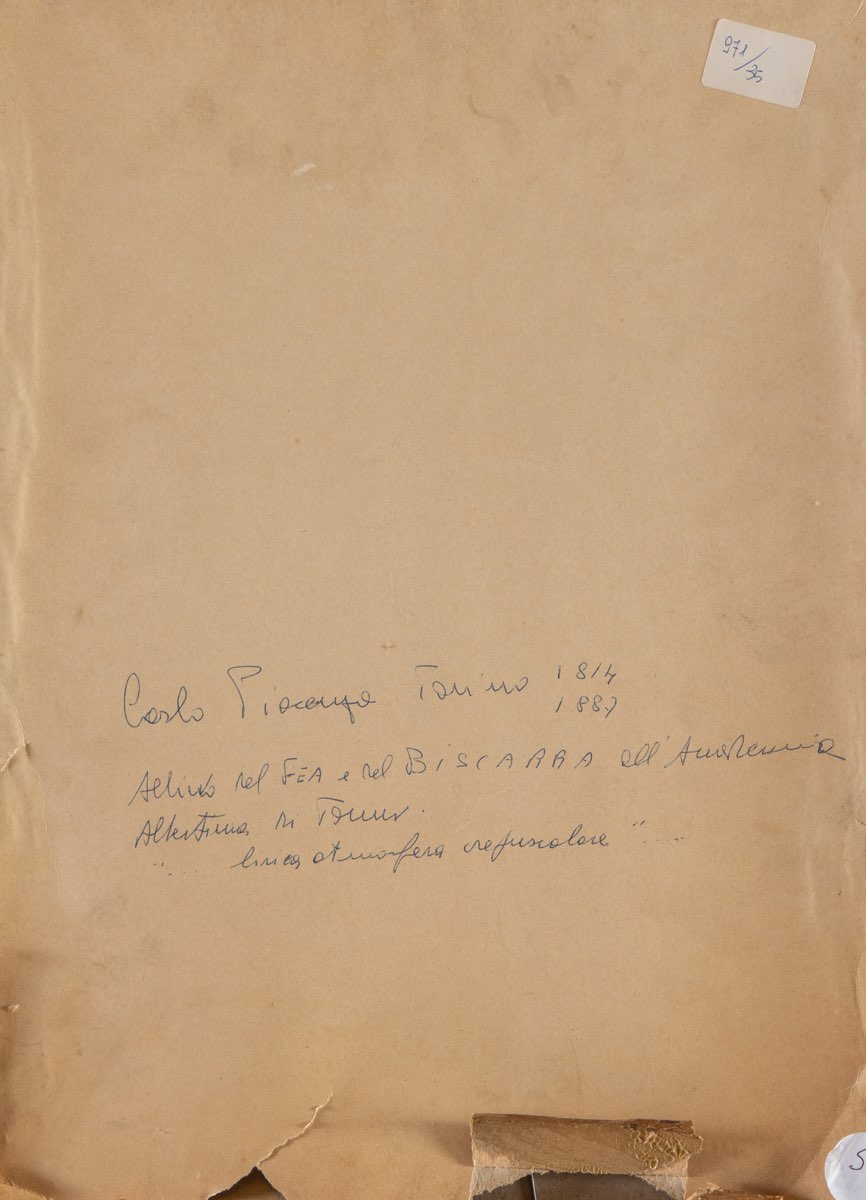 971/35
Carlo Piacenza Torino 1814
1887
Allievo del FEA e del BISCARRA all'Accademia
Albertina di Torino.
"..... lirica atmosfera crepuscolare".....
S